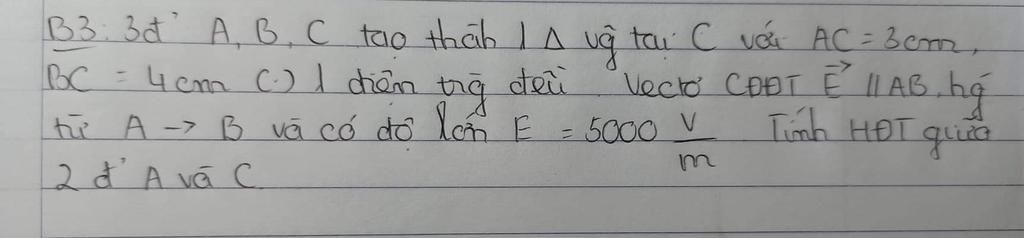 B3: 3đ' A, B, C tạo thàh 1 Δ vg̃ tại C với AC = 3cm,
BC = 4cm (·) 1 điện trg̃ đều Vectơ CĐĐT E⃗ // AB, hǵ
từ A → B và có độ lớn E = 5000 V/m Tính HĐT giữa
2 đ' A và C